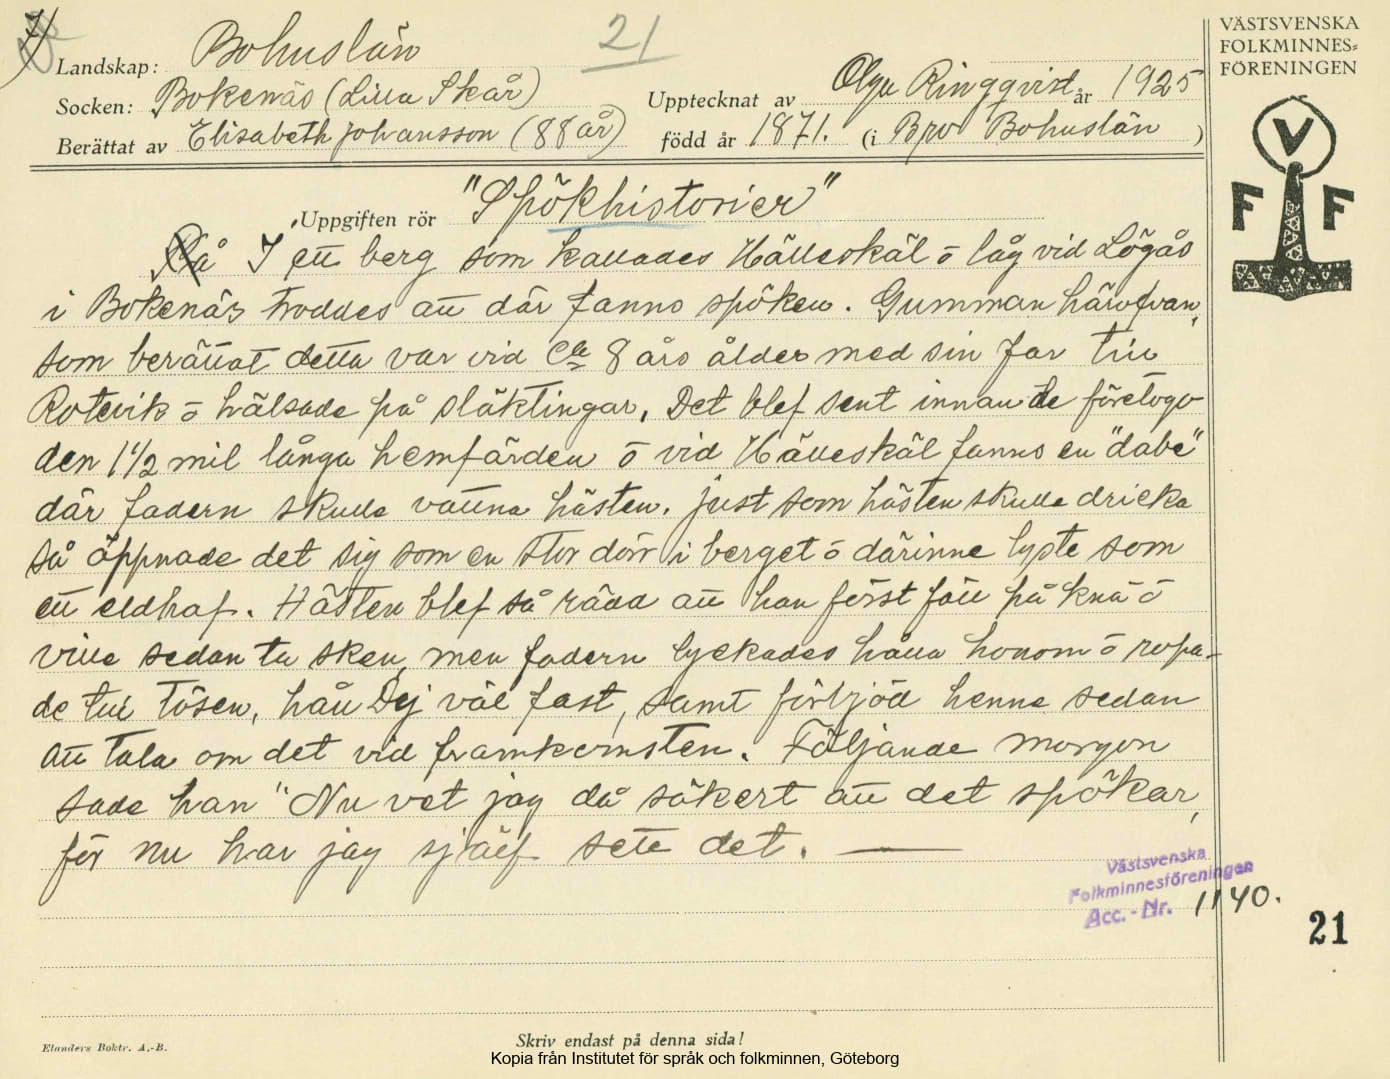 21
VÄSTSVENSKA
FOLKMINNES=
FÖRENINGEN
V
F F
Landskap: Bohuslän
Socken: Bokenäs (Lilla Skår)
Upptecknat av Olga Ringqvist år 1925
Berättat av Elisabeth Johansson (88 år)
född år 1871. (i Bro Bohuslän)
Uppgiften rör "Spökhistorier"
På I ett berg som kallades Hälleskäl o låg vid Lögås
i Bokenäs troddes att där fanns spöken. Gumman härofvan,
som berättat detta var vid 8 års ålder med sin far till
Rotevik o hälsade på släktingar. Det blef sent innan de företogo
den 1 1/2 mil långa hemfärden o vid Hälleskäl fanns en "dabe"
där fadern skulle vattna hästen. Just som hästen skulle dricka
så öppnade det sig som en stor dörr i berget o därinne lyste som
ett eldhaf. Hästen blef så rädd att han först föll på knä o
ville sedan ta sken, men fadern lyckades hålla honom o ropa-
de till tösen, håll Dej väl fast, samt förbjöd henne sedan
att tala om det vid framkomsten. Följande morgon
sade han "Nu vet jag då säkert att det spökar,
för nu har jag själf sett det. —
Västsvenska
Folkminnesföreningen
Acc. - Nr. 1140.
21
Elanders Boktr. A.-B.
Skriv endast på denna sida!
Kopia från Institutet för språk och folkminnen, Göteborg